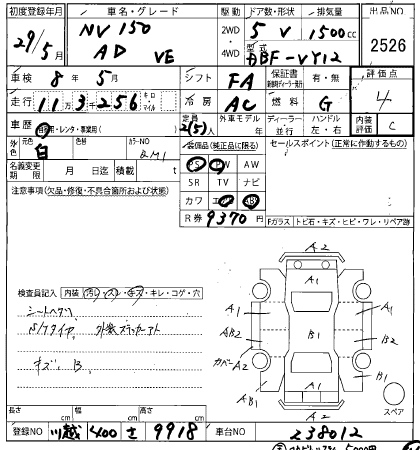 初度登録年月 車名・グレード 駆動 ドア数・形状 排気量 出品NO
29/5月 NV150 AD VE 2WD 4WD 5 V 1500cc 2526
型式 ABF-VY12
車検 8年 5月 シフト FA 保証書 有・無 評価点
走行 11万3千256 キロ マイル 冷房 AC 燃料 G 4
車歴 自家用・レンタ・事業用( ) 定員 2(5)人 外車モデル 年 ディーラー・並行 ハンドル 左・右 内装評価 C
外色 元色 白 色替 カラーNO QM1 装備品(純正品に限る) セールスポイント(正常に作動するもの)
PS PW AW
名義変更期限 月 日迄 積載 t SR TV ナビ
注意事項(欠品・修復・不具合箇所および状態) カワ エアB ABS
R券 9370円 Fガラス トビ石・キズ・ヒビ・ワレ・リペア跡
A2
A1
検査員記入 内装 汚れ・スレ・キズ・キレ・コゲ・穴
シートヘタリ A1 A1
S/Tタイヤ、 外装ステッカーアト AB2 B1 B2
カバーA2
キズ B B1
AB1 A1
A2 スペア
長さ cm 幅 cm 高さ cm
登録NO 川越 400 さ 9918 車台NO 238012